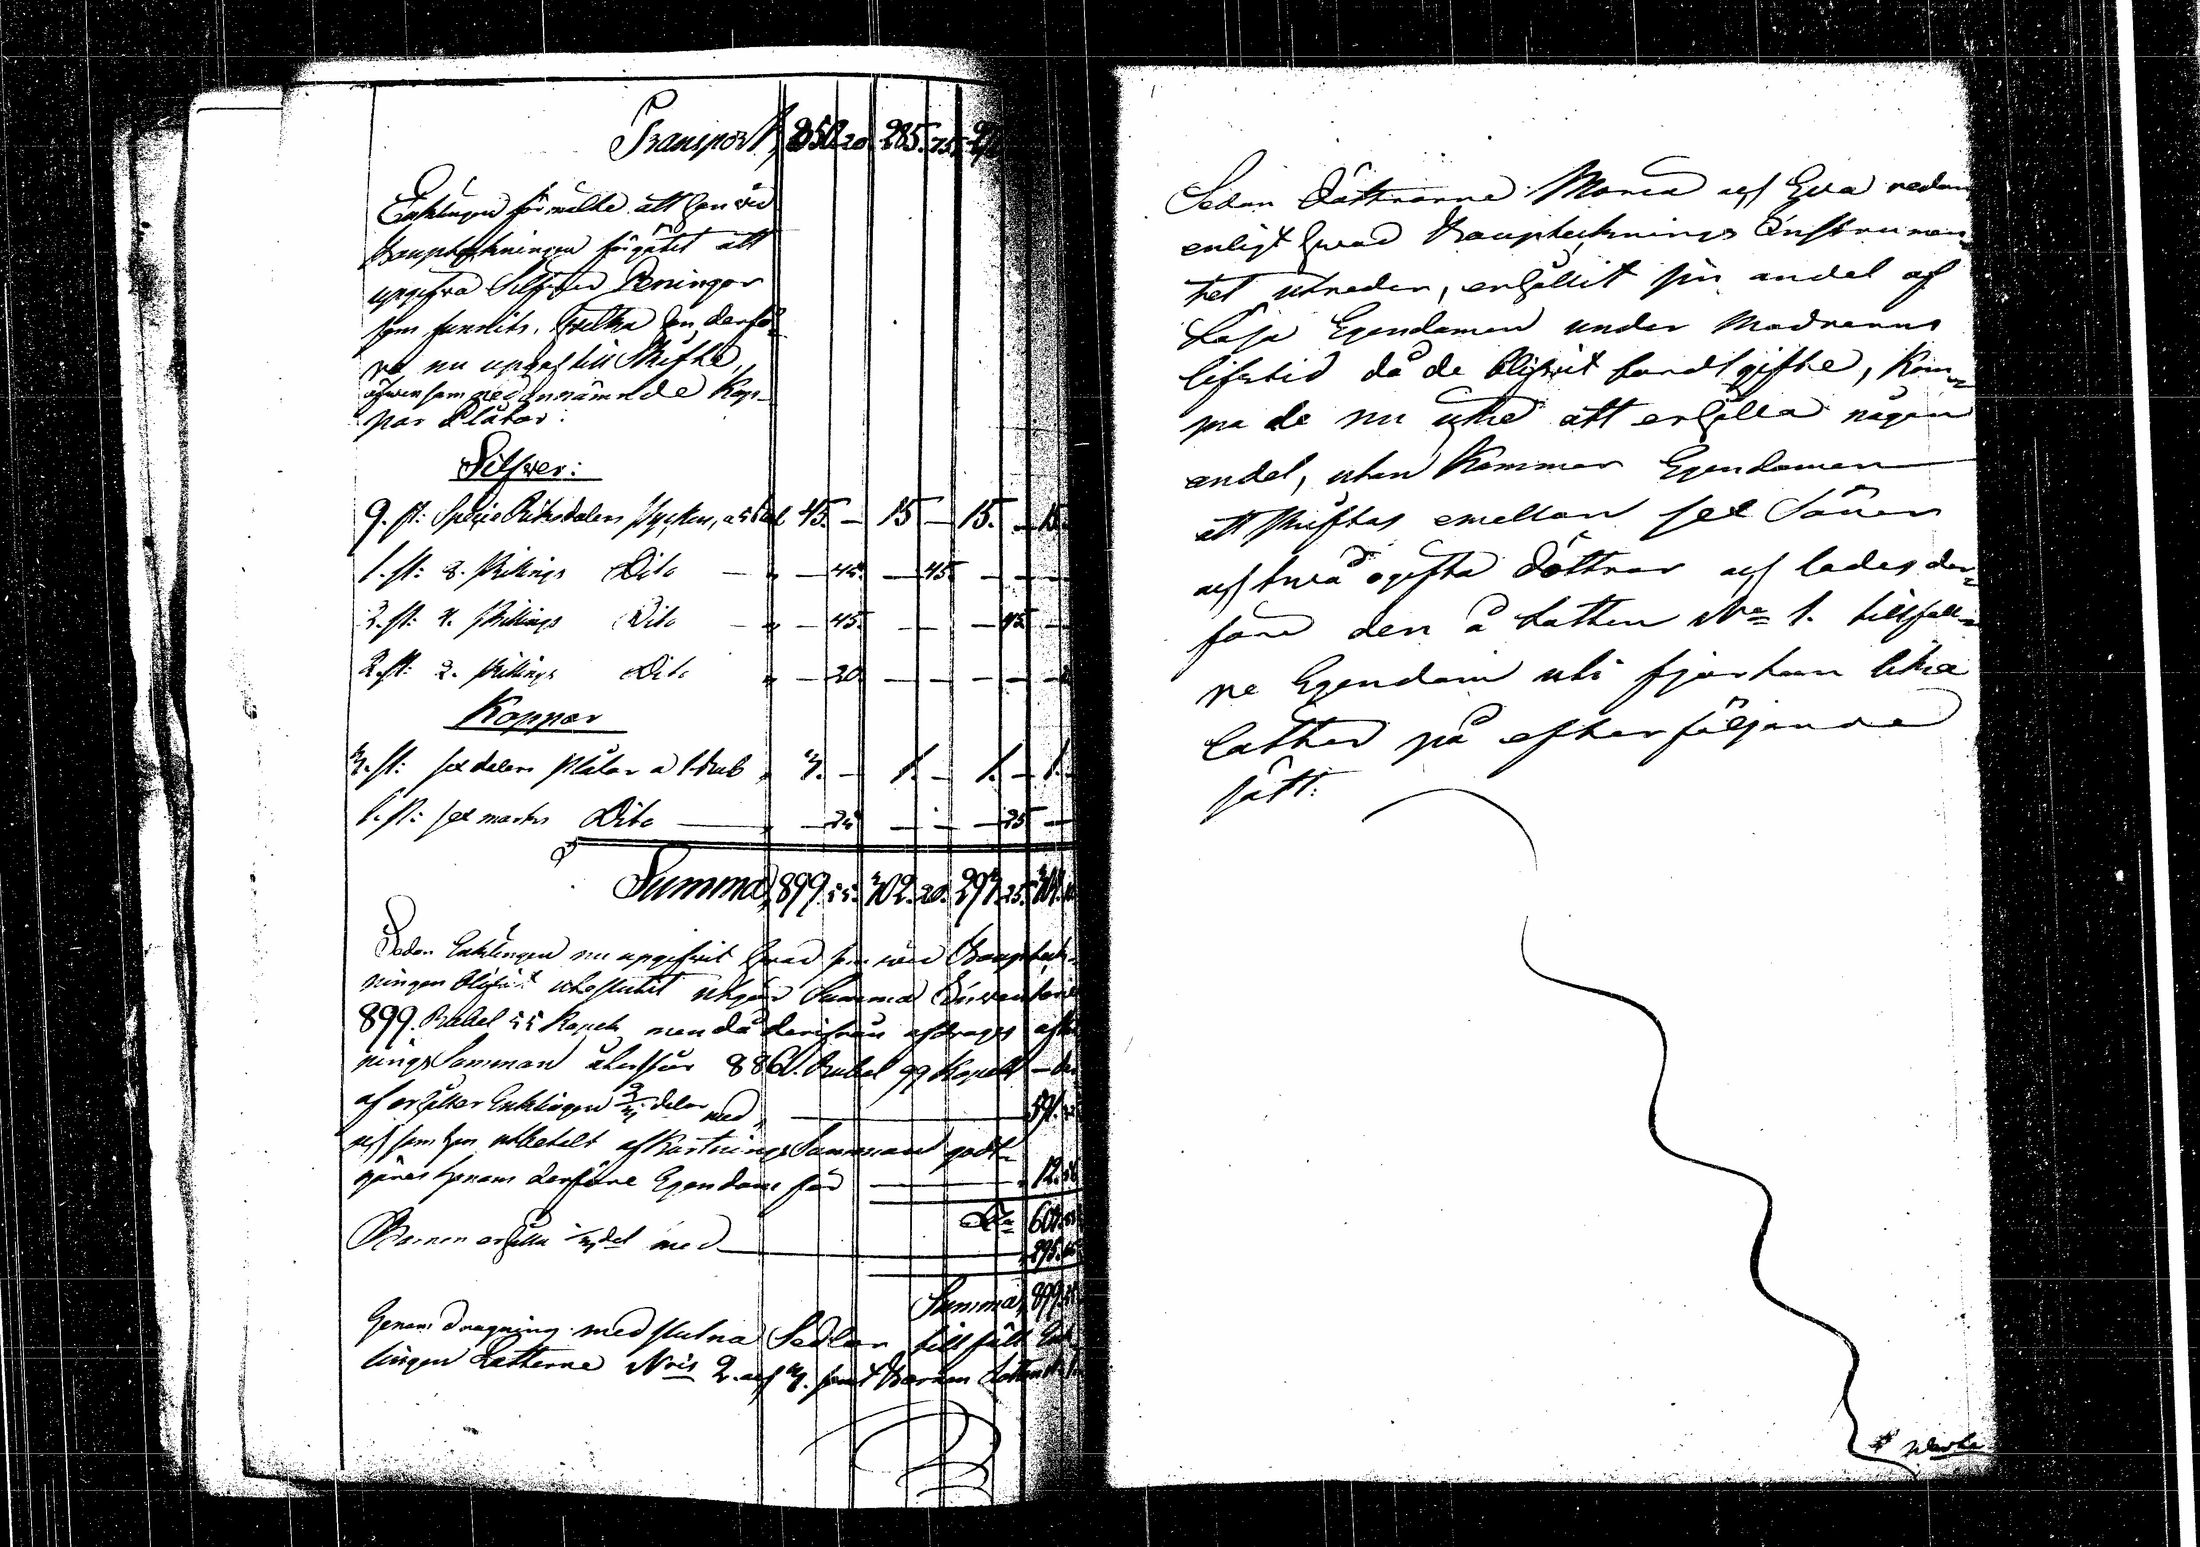 Transport, 850. 20. 285. 75.
Enklingen förmälte att han vid
Bouptekningen förgätit att
uppgifva Silfver Peningar
som funnits, hvilka han derfö-
re nu uppgaf till Skifte,
äfvensom nedannämnde Kop-
par Plåtar:
Silfver:
9. st: Specie Riksdalers stycken, a 5 Rubl 45. — 15 — 15. — 15.
1. st: 8. skillings Dito — " — 45. — 45. — —
3. st: 4. skillings Dito — " — 45. — — — 45. —
2. st: 2. skillings Dito " — 20. — — — —
Koppar
3. st: sex dalers Plåtar a 1. Rub " 3. — 1. — 1. — 1. —
1. st: sex marks Dito — " — 25. — — — 25 —
Summa, 899. 55. 302. 20. 293. 25.
Sedan Enklingen nu uppgifvit hvad som vid Bouptek-
ningen blifvit uteslutit utgör Summa Inventarie
899. Rubel 55 Kopek, men då derifrån afdrages afkort
nings Summan återstår 886. Rubel 99 Kopek — der
af erhåller Enklingen 2/3 delar med,
och som han utbetalt afkortnings Summan godt-
göres honom derföre Egendom för — 12. 56
Barnen erhålla 1/3 del med — 295. 66
Summa, 899. 55
Genom dragning med slutna Sedlar tillföll Enk-
lingen Lotterne Nris 2. och 3. samt Barnen Lotten N. 1.
Sedan Döttrarne Maria och Eva redan
enligt hvad Bouptecknings Instrumen-
tet utreder, erhållit sin andel af
Lösa Egendomen under Modrens
lifstid då de blifvit bordtgifte, Kom-
ma de nu icke att erhålla någon
andel, utan Kommer Egendomen
att skiftas emellan sex Söner
och tvä ogifta döttrar och lades der-
före den å Lotten No 1. tillfall-
ne Egendom uti fjorton lika
Lotter på efterföljande
sätt: